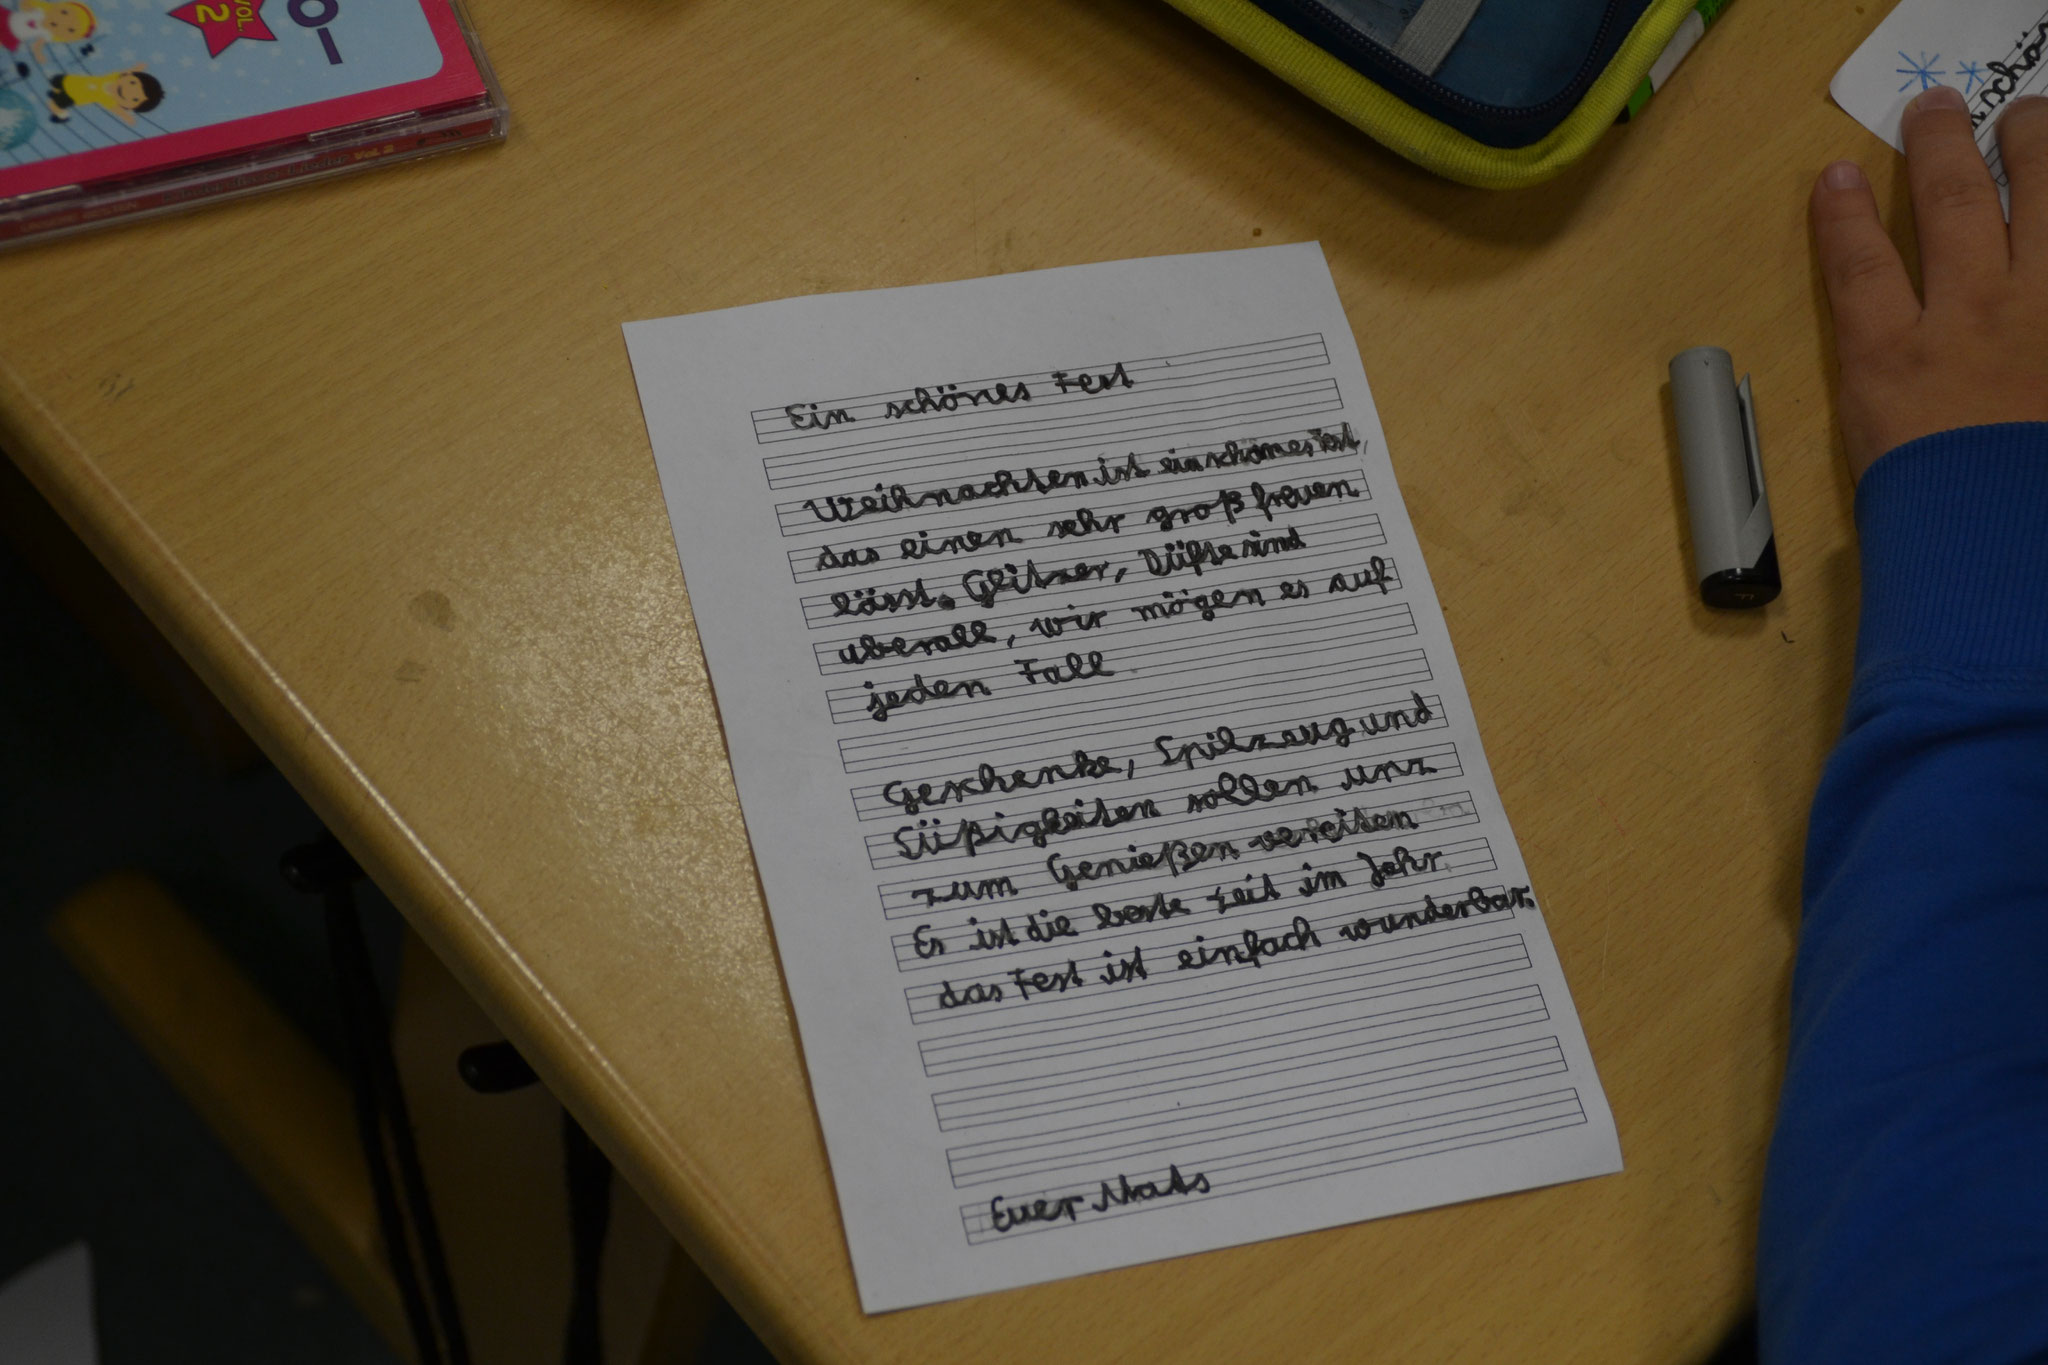 VOL.
2
Lieder Vol. 2
schön
Ein schönes Fest
Weihnachten ist ein schönes Fest,
das einen sehr groß freuen
lässt. Glitzer, Düfte sind
uberall, wir mögen es auf
jeden Fall
Geschenke, Spilzeug und
Süßigkeiten sollen unz
zum Genießen vereiten
Es ist die beste Zeit im Jahr
das Fest ist einfach wunderbar.
Euer Mats
F